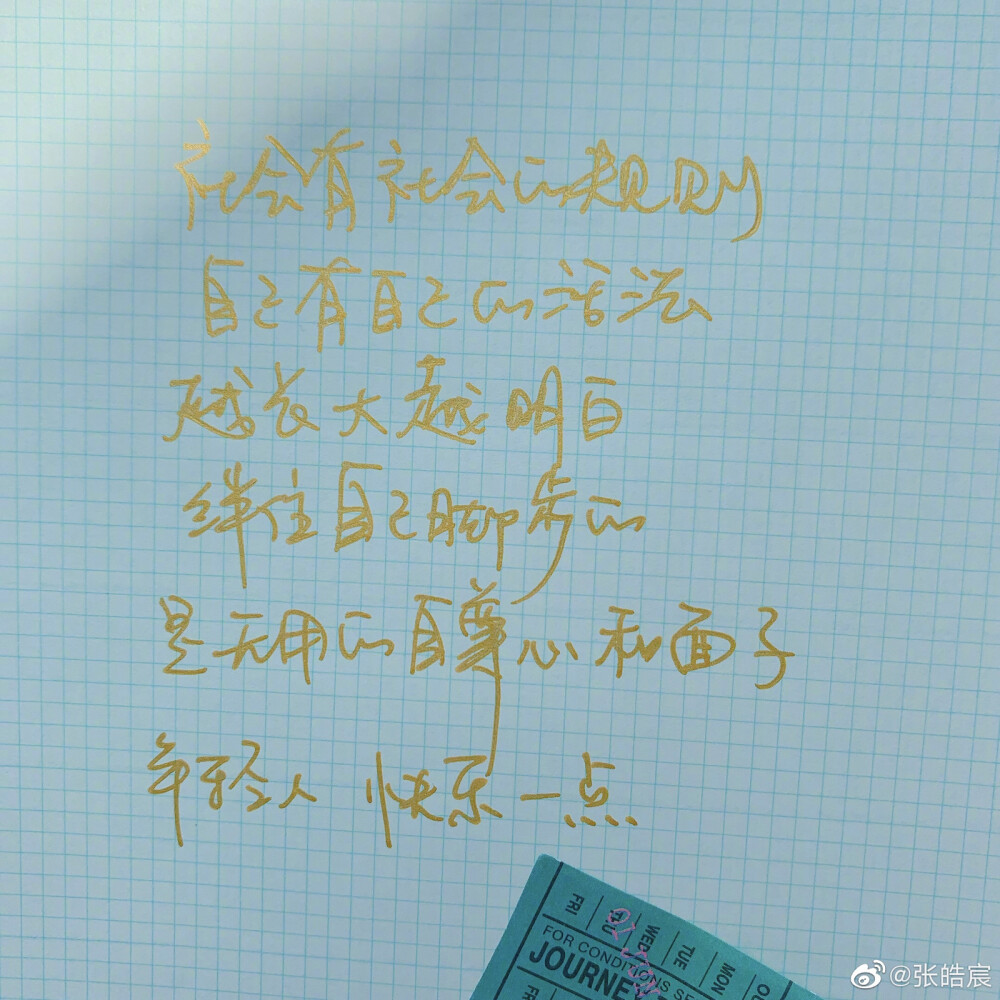 社会有社会的规则
自己有自己的活法
越长大越明白
绊住自己脚步的
是无用的自尊心和面子
年轻人 快乐一点
FRI THU WED TUE MON
FOR CONDITIONS SE
JOURNE
FR
@张皓宸